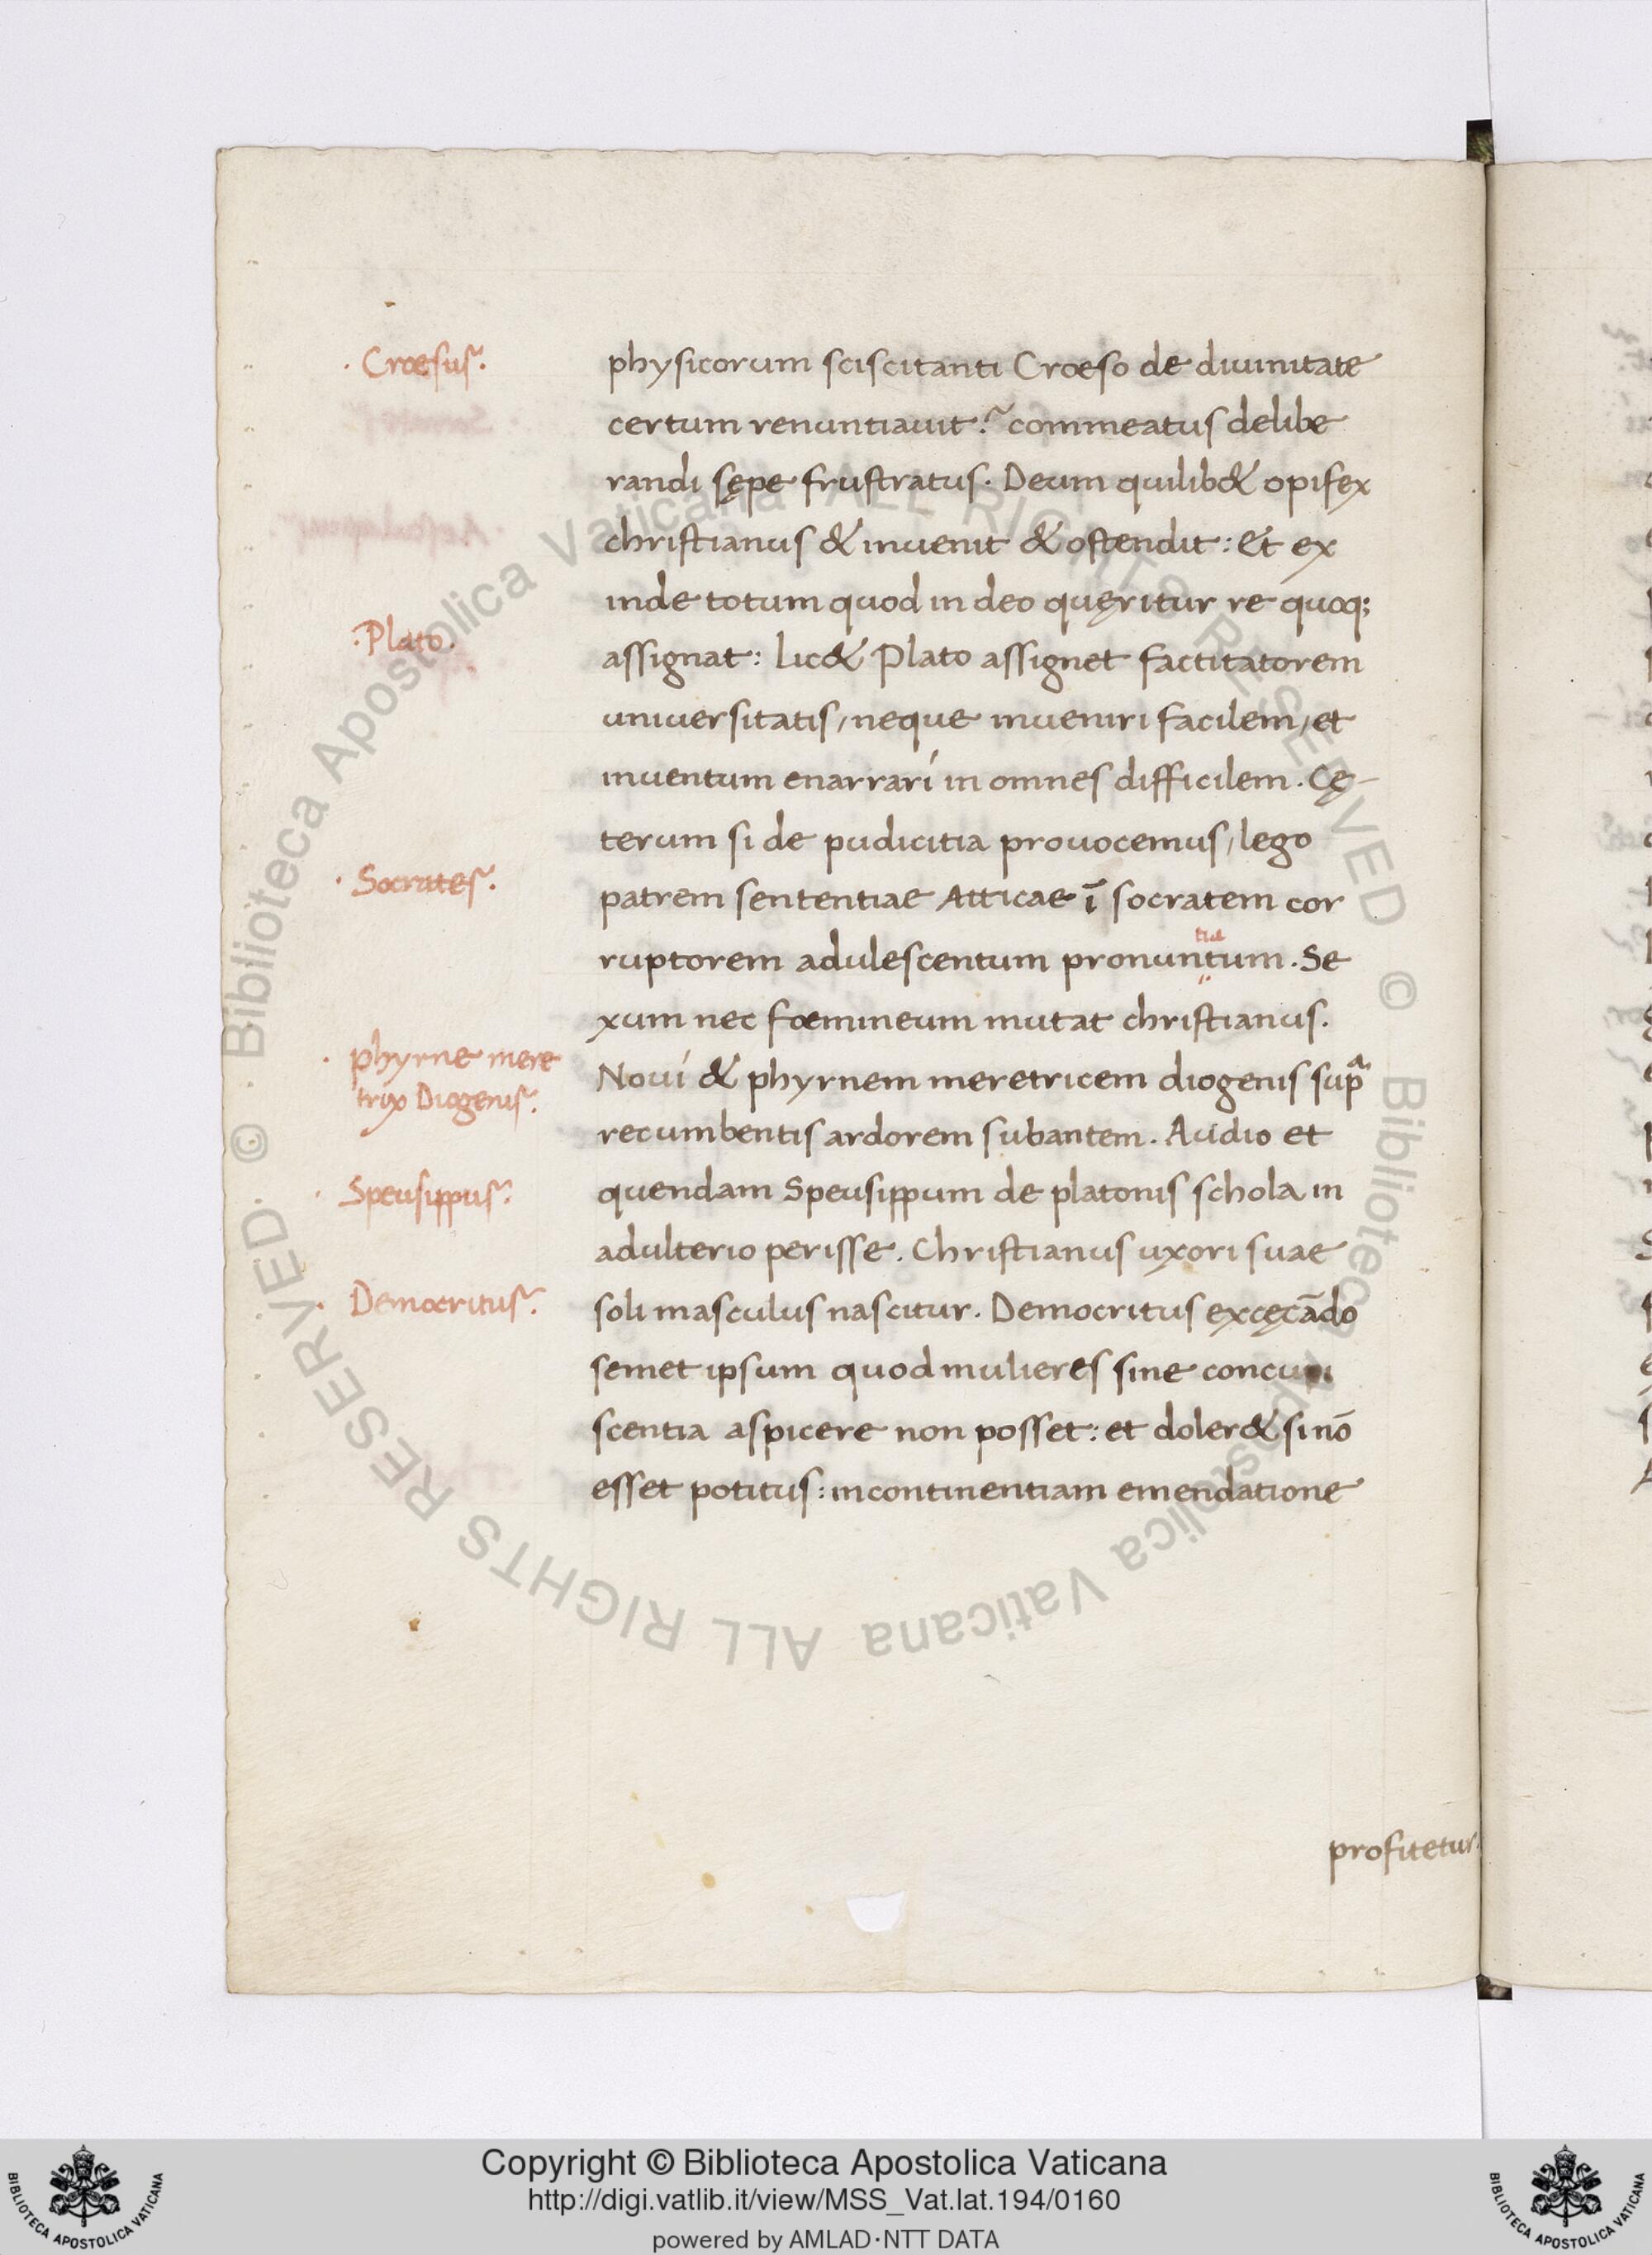 · Croesus.
physicorum sciscitanti Croeso de diuinitate
certum renuntiauit? commeatus delibe
randi sępe frustratus. Deum quilib& opifex
christianus & inuenit & ostendit: Et ex
inde totum quod in deo quęritur re quoq;
· Plato.
assignat: lic& Plato assignet factitatorem
uniuersitatis, neque inueniri facilem, et
inuentum enarrari in omnes difficilem. Cę-
terum si de pudicitia prouocemus, lego
· Socrates.
patrem sententiae Atticae ī socratem cor
tia
ruptorem adulescentum pronuntum. Se
xum nec foemineum mutat christianus.
· phyrne mere
trix Diogenis.
Noui & phyrnem meretricem diogenis supᵃ
recumbentis ardorem subantem. Audio et
· Speusippus.
quendam Speusippum de platonis schola in
adulterio perisse. Christianus uxori suae
· Democritus.
soli masculus nascitur. Democritus excęcādo
semet ipsum quod mulieres sine concupi
scentia aspicere non posset: et doler& si nō
esset potitus: incontinentiam emendatione
profitetur
© Biblioteca Apostolica Vaticana ALL RIGHTS RESERVED
© Biblioteca Apostolica Vaticana ALL RIGHTS RESERVED
Copyright © Biblioteca Apostolica Vaticana
http://digi.vatlib.it/view/MSS_Vat.lat.194/0160
powered by AMLAD·NTT DATA
BIBLIOTECA APOSTOLICA VATICANA
BIBLIOTECA APOSTOLICA VATICANA